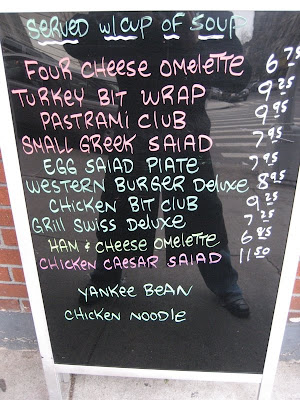 SERVED W/CUP OF SOUP
FOUR CHEESE OMELETTE 6.75
TURKEY BIT WRAP 9.25
PASTRAMI CLUB 9.95
SMALL GREEK SAlAD 7.95
EGG SAlAD PlATE 7.95
WESTERN BURGER DELUXE 8.95
CHICKEN BIT CLUB 9.25
GRill SWISS DELUXE 7.25
HAM & CHEESE OMELETTE 6.85
CHICKEN CAESAR SAlAD 11.50
YANKEE BEAN
CHICKEN NOODLE